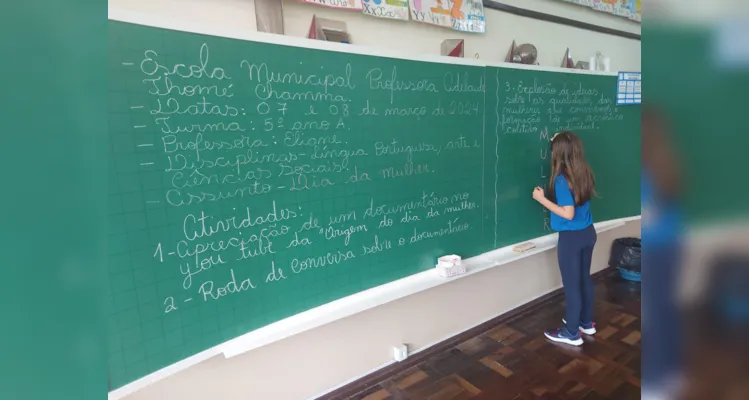 - Escola Municipal Professora Adelaide
Thomé Chamma.
- Datas: 07 e 08 de março de 2024
- Turma: 5º ano A.
- Professora: Eliane.
- Disciplinas - Língua Portuguesa, arte e
Ciências Sociais.
- Assunto - Dia da mulher.
Atividades:
1 - Apreciação de um documentário no
you tube da "Origem do dia da mulher.
2 - Roda de conversa sobre o documentário.
3 - Explosão de ideias
sobre as qualidades das
mulheres
formação de um acróstico
coletivo
M
U
L